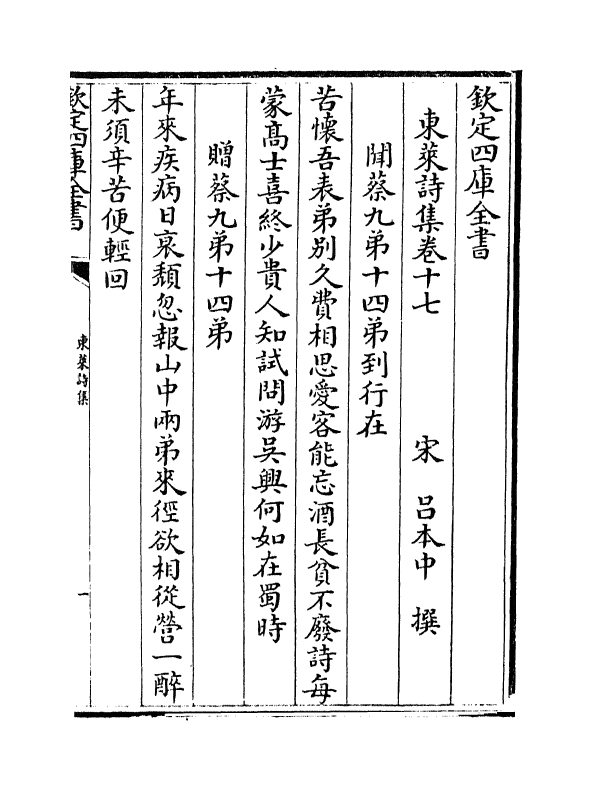 欽定四庫全書
東萊詩集卷十七　宋　呂本中　撰
聞蔡九弟十四弟到行在
苦懷吾表弟別久費相思愛客能忘酒長貧不廢詩每
蒙髙士喜終少貴人知試問游吳興何如在蜀時
贈蔡九弟十四弟
年來疾病日衰頽忽報山中兩弟來徑欲相從營一醉
未須辛苦便輕回
欽定四庫全書
東萊詩集
一